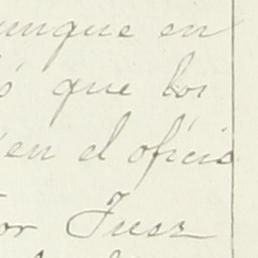 aunque en
que los
en el oficio
or Juez